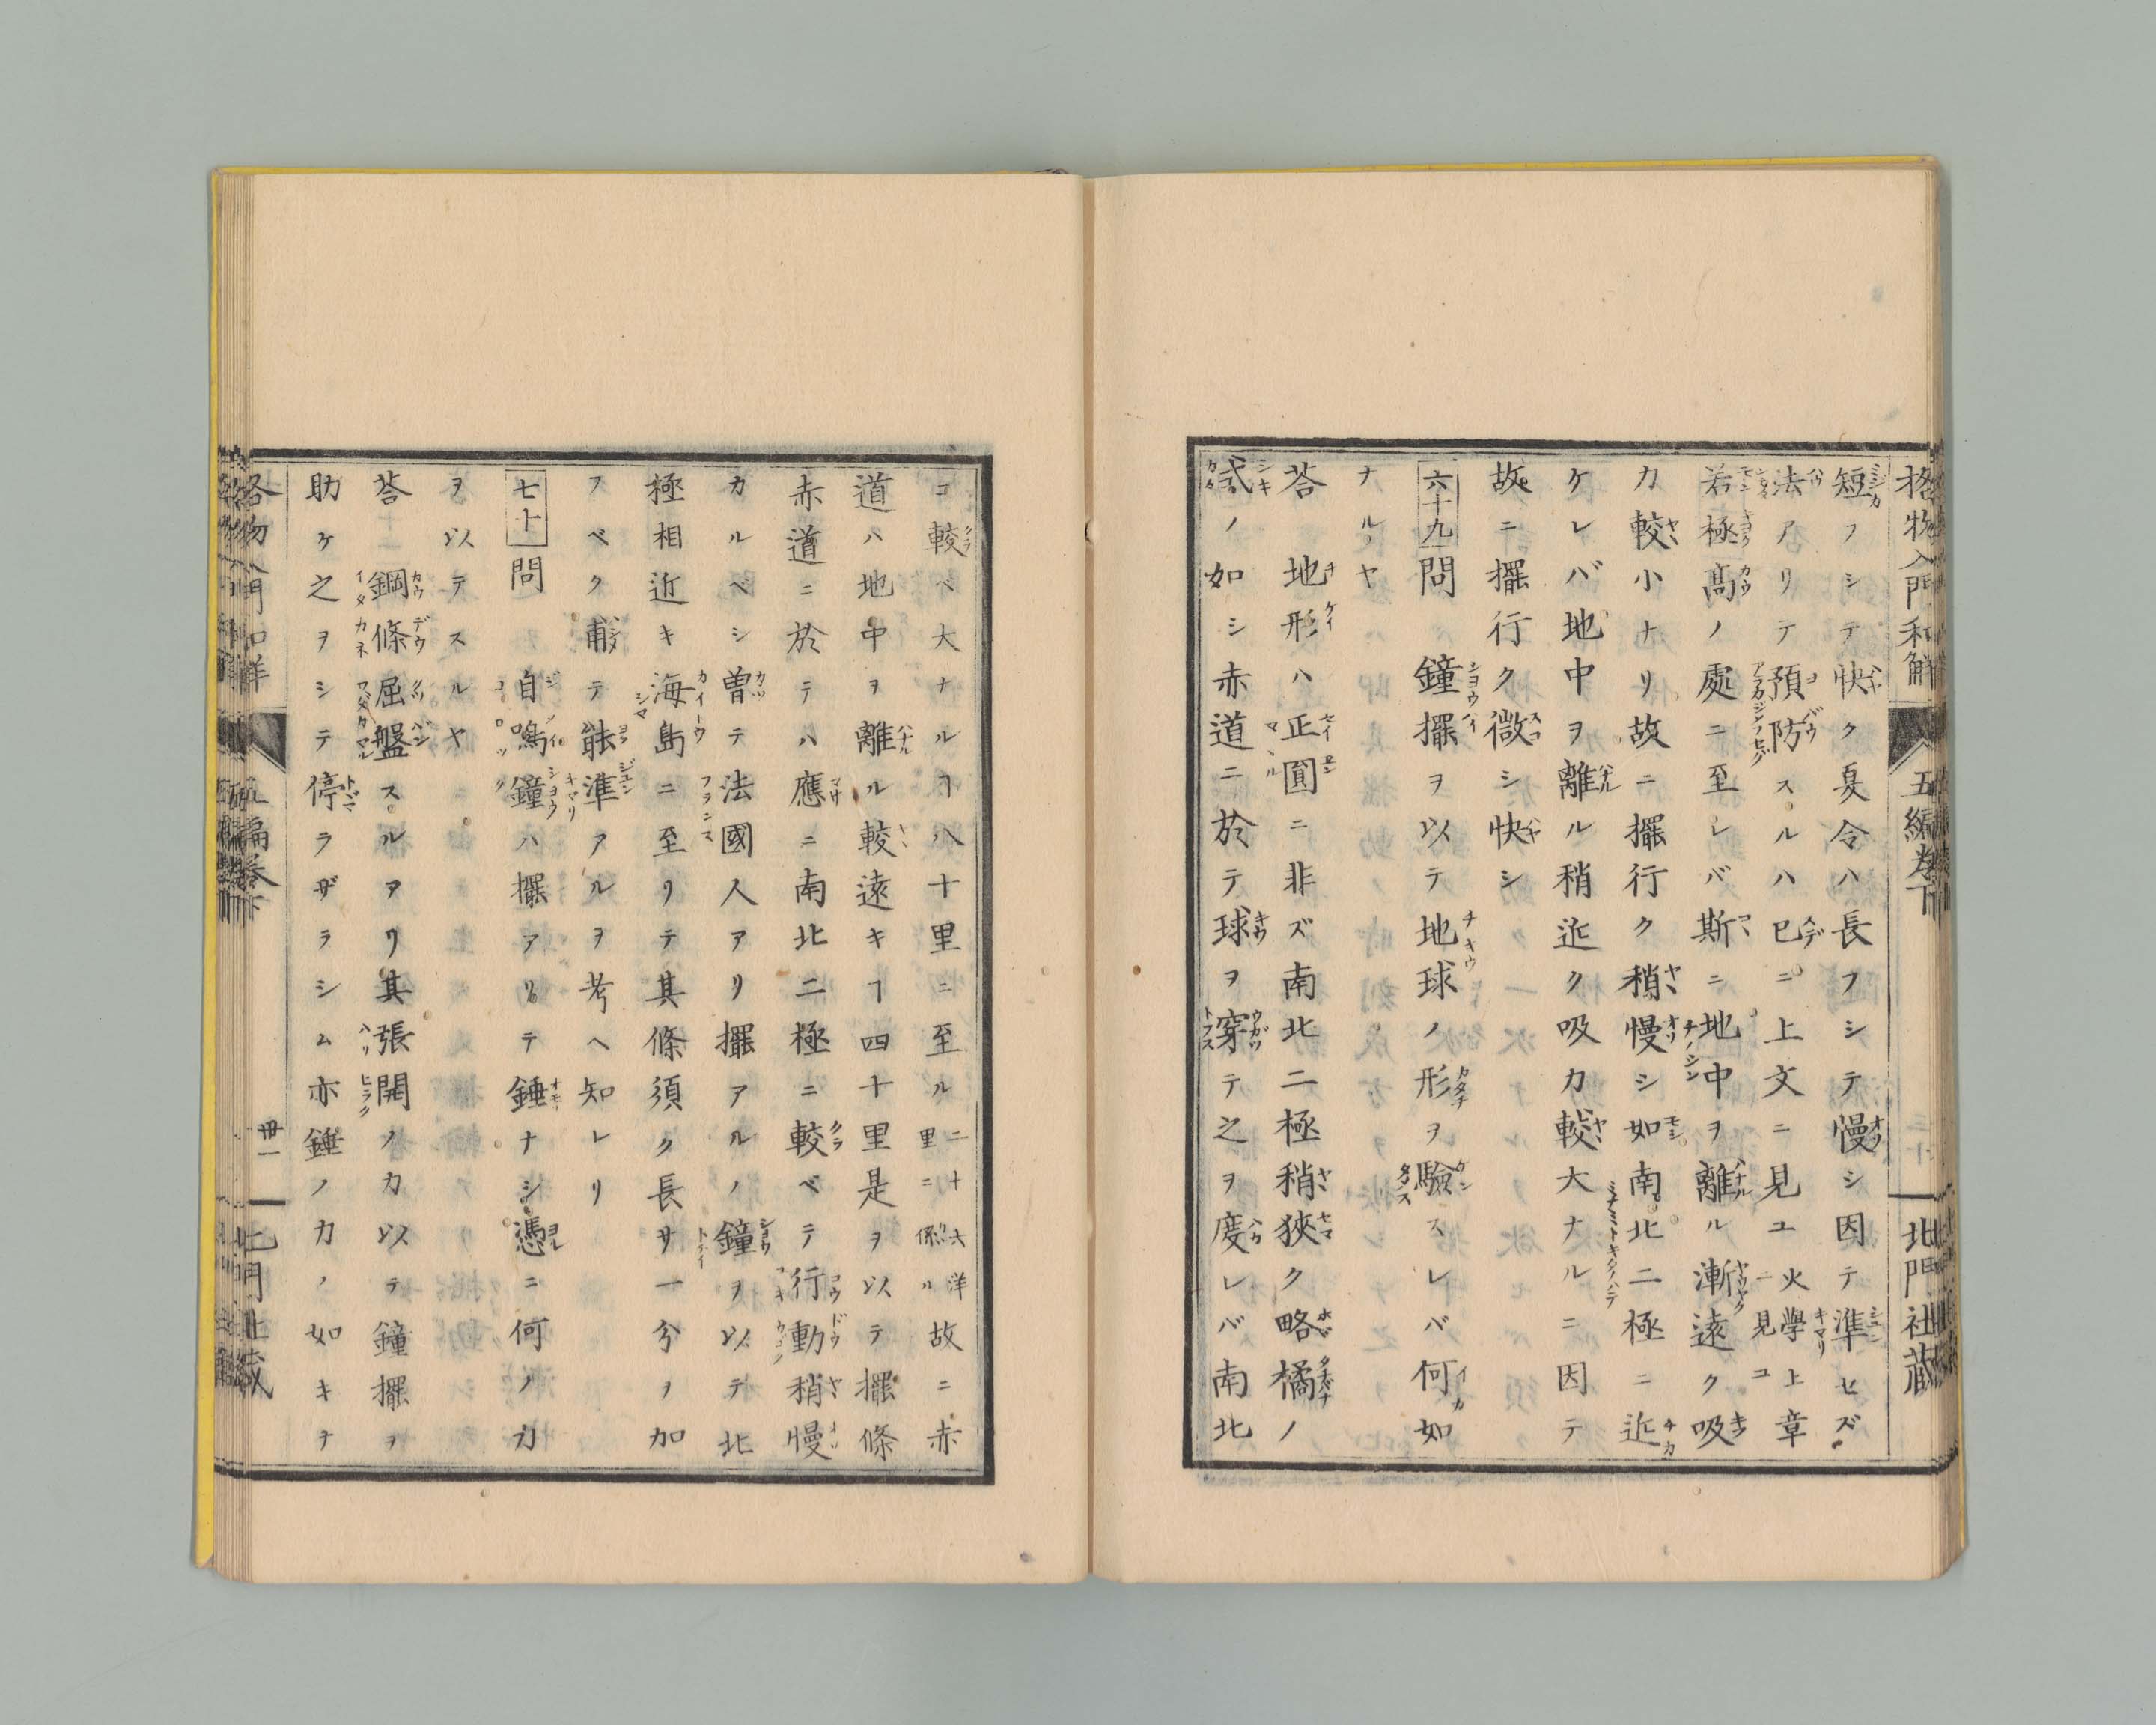 格物入門和解 五編巻下 北門社藏
短フシテ快ク夏令ハ長フシテ慢シ因テ準セズ
法アリテ預防スルハ已ニ上文ニ見ユ火學上章ニ見ユ
若極高ノ處ニ至レバ斯ニ地中ヲ離ル漸遠ク吸
力較小ナリ故ニ擺行ク稍慢シ如南北二極ニ近
ケレバ地中ヲ離ル稍近ク吸力較大ナルニ因テ
故ニ擺行ク微シ快シ
六十九 問 鐘擺ヲ以テ地球ノ形ヲ驗スレバ何如
ナルヤ
荅 地形ハ正圓ニ非ズ南北二極稍狹ク略橘ノ
式ノ如シ赤道ニ於テ球ヲ穿テ之ヲ度レバ南北
ニ較ベ大ナルヿ八十里ニ至ル二十六洋里ニ係ル故ニ赤
道ハ地中ヲ離ル較遠キヿ四十里是ヲ以テ擺條
赤道ニ於テハ應ニ南北二極ニ較ベテ行動稍慢
カルベシ曽テ法國人アリ擺アルノ鐘ヲ以テ北
極相近キ海島ニ至リテ其條須ク長サ一分ヲ加
フベク甫テ能準アルヲ考ヘ知レリ
七十 問 自鳴鐘ハ擺アリテ錘ナシ憑ニ何ノ力
ヲ以テスルヤ
荅 鋼條屈盤スルアリ其張開ノ力以テ鐘擺ヲ
助ケ之ヲシテ停ラザラシム亦錘ノ力ノ如キナ
五編巻下 卅一